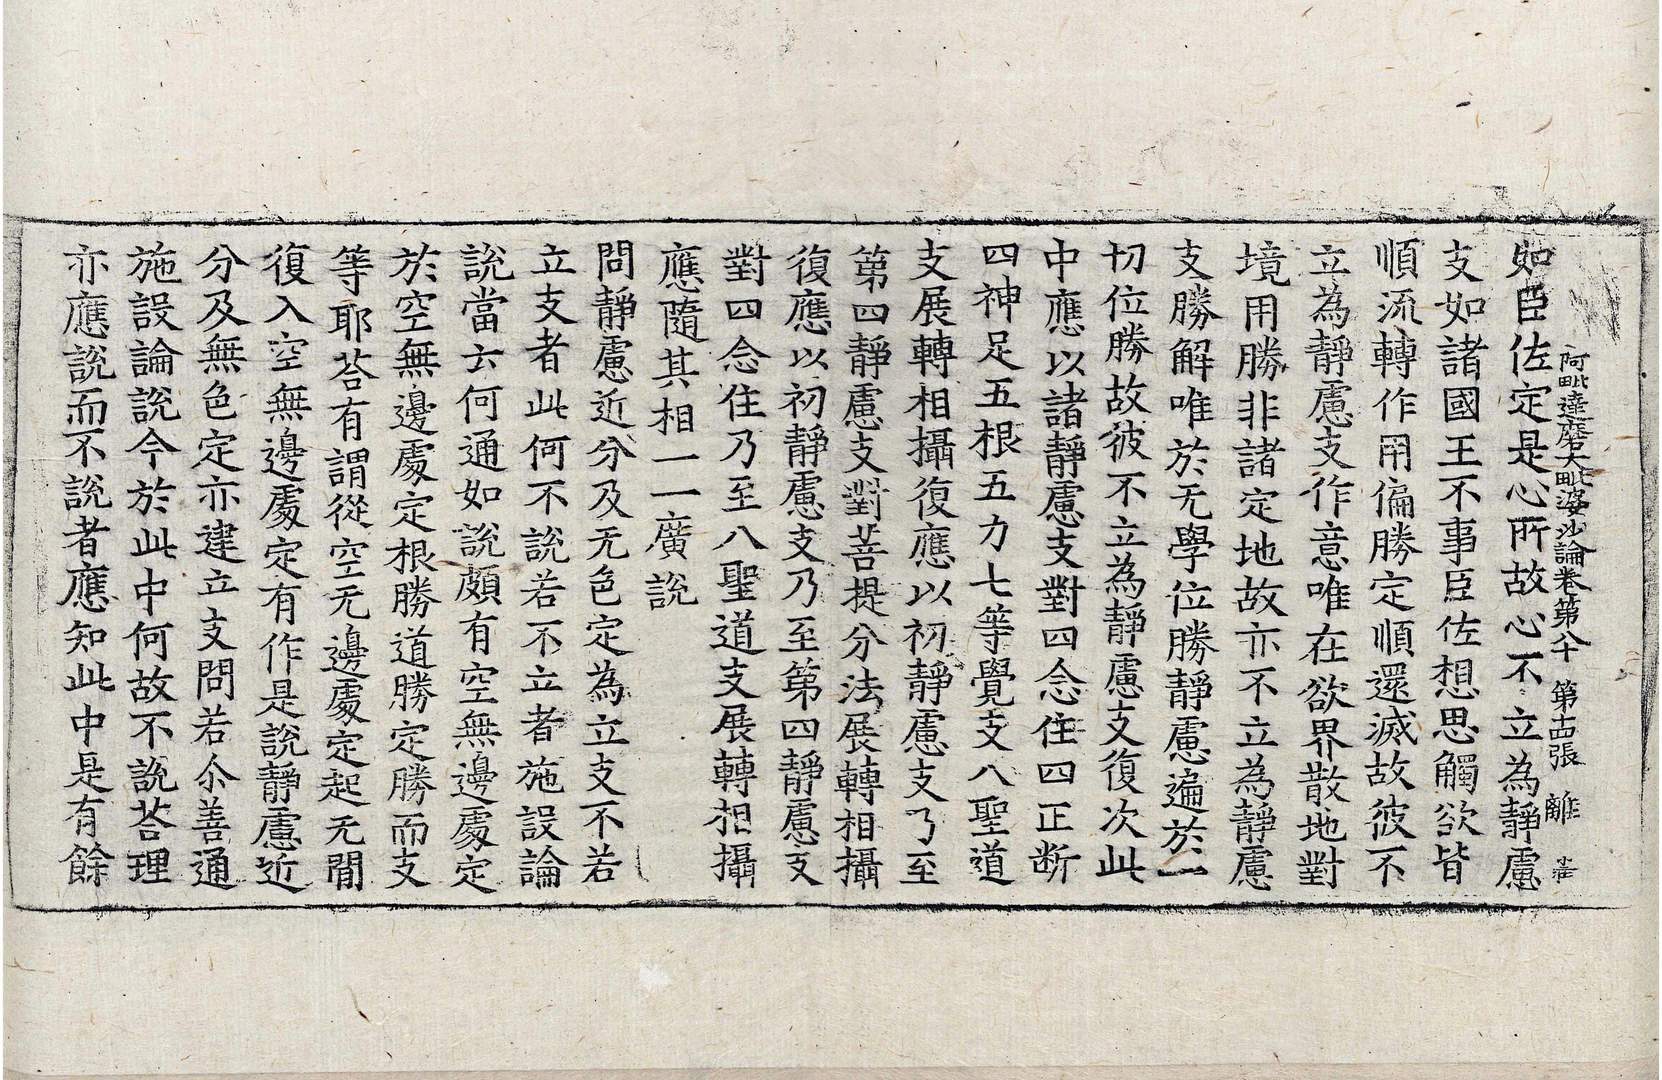 阿毗達磨大毗婆沙論卷第八十 第古張 離
如臣佐定是心所故心不立為靜慮
支如諸國王不事臣佐想思觸欲皆
順流轉作用偏勝定順還滅故彼不
立為靜慮支作意唯在欲界散地對
境用勝非諸定地故亦不立為靜慮
支勝解唯於无學位勝靜慮遍於一
切位勝故彼不立為靜慮支復次此
中應以諸靜慮支對四念住四正断
四神足五根五力七等覺支八聖道
支展轉相攝復應以初靜慮支乃至
第四靜慮支對菩提分法展轉相攝
復應以初靜慮支乃至第四靜慮支
對四念住乃至八聖道支展轉相攝
應隨其相一一廣說
問靜慮近分及无色定為立支不若
立支者此何不說若不立者施設論
說當云何通如說頗有空無邊處定
於空無邊處定根勝道勝定勝而支
等耶荅有謂從空无邊處定起无間
復入空無邊處定有作是說靜慮近
分及無色定亦建立支問若尒善通
施設論說今於此中何故不說荅理
亦應說而不說者應知此中是有餘